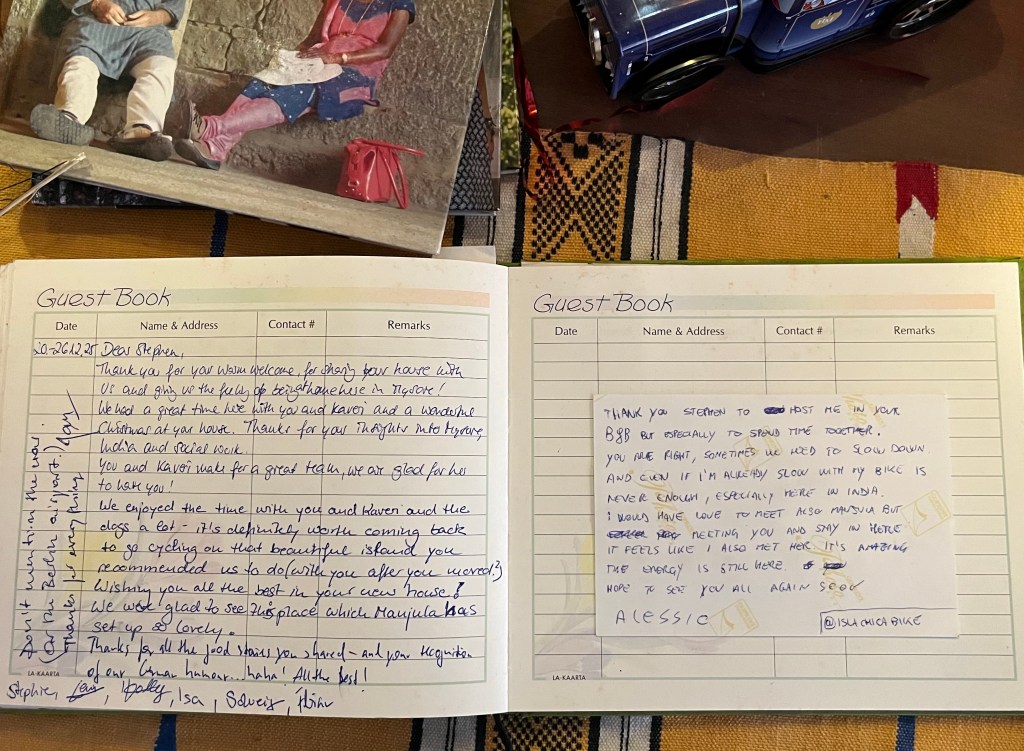 Guest Book
Date Name & Address Contact # Remarks
20.-26.12.25 Dear Stephen,
Thank you for your warm welcome, for sharing your house with
us and giving us the feeling of being at home here in Mysore!
We had a great time here with you and Kaveri and a wonderful
Christmas at your house. Thanks for your insights into Mysore,
India and social work.
You and Kaveri make for a great team, we are glad for her
to have you!
We enjoyed the time with you and Kaveri and the
dogs a lot - it's definitely worth coming back
to go cycling on that beautiful island you
recommended us to do (with you after you moved?)
Wishing you all the best in your new house!
We were glad to see this place which Manjula has
set up so lovely.
Thanks for all the good stories you shared - and your recognition
of our German humour... haha! All the best!
Stephie, Isa,
Don't mention the war!
(Or the Berlin airport!)
Thanks for everything
LA-KAARTA
Guest Book
Date Name & Address Contact # Remarks
THANK YOU STEPHEN TO HOST ME IN YOUR
B&B BUT ESPECIALLY TO SPEND TIME TOGETHER.
YOU ARE RIGHT, SOMETIMES WE NEED TO SLOW DOWN.
AND EVEN IF I'M ALREADY SLOW WITH MY BIKE IS
NEVER ENOUGH, ESPECIALLY HERE IN INDIA.
I WOULD HAVE LOVE TO MEET ALSO MANJULA BUT
MEETING YOU AND STAY IN HERE
IT FEELS LIKE I ALSO MET HER. IT'S AMAZING
THE ENERGY IS STILL HERE.
HOPE TO SEE YOU ALL AGAIN SOON
ALESSIO
@ISLACHICABIKE
LA-KAARTA